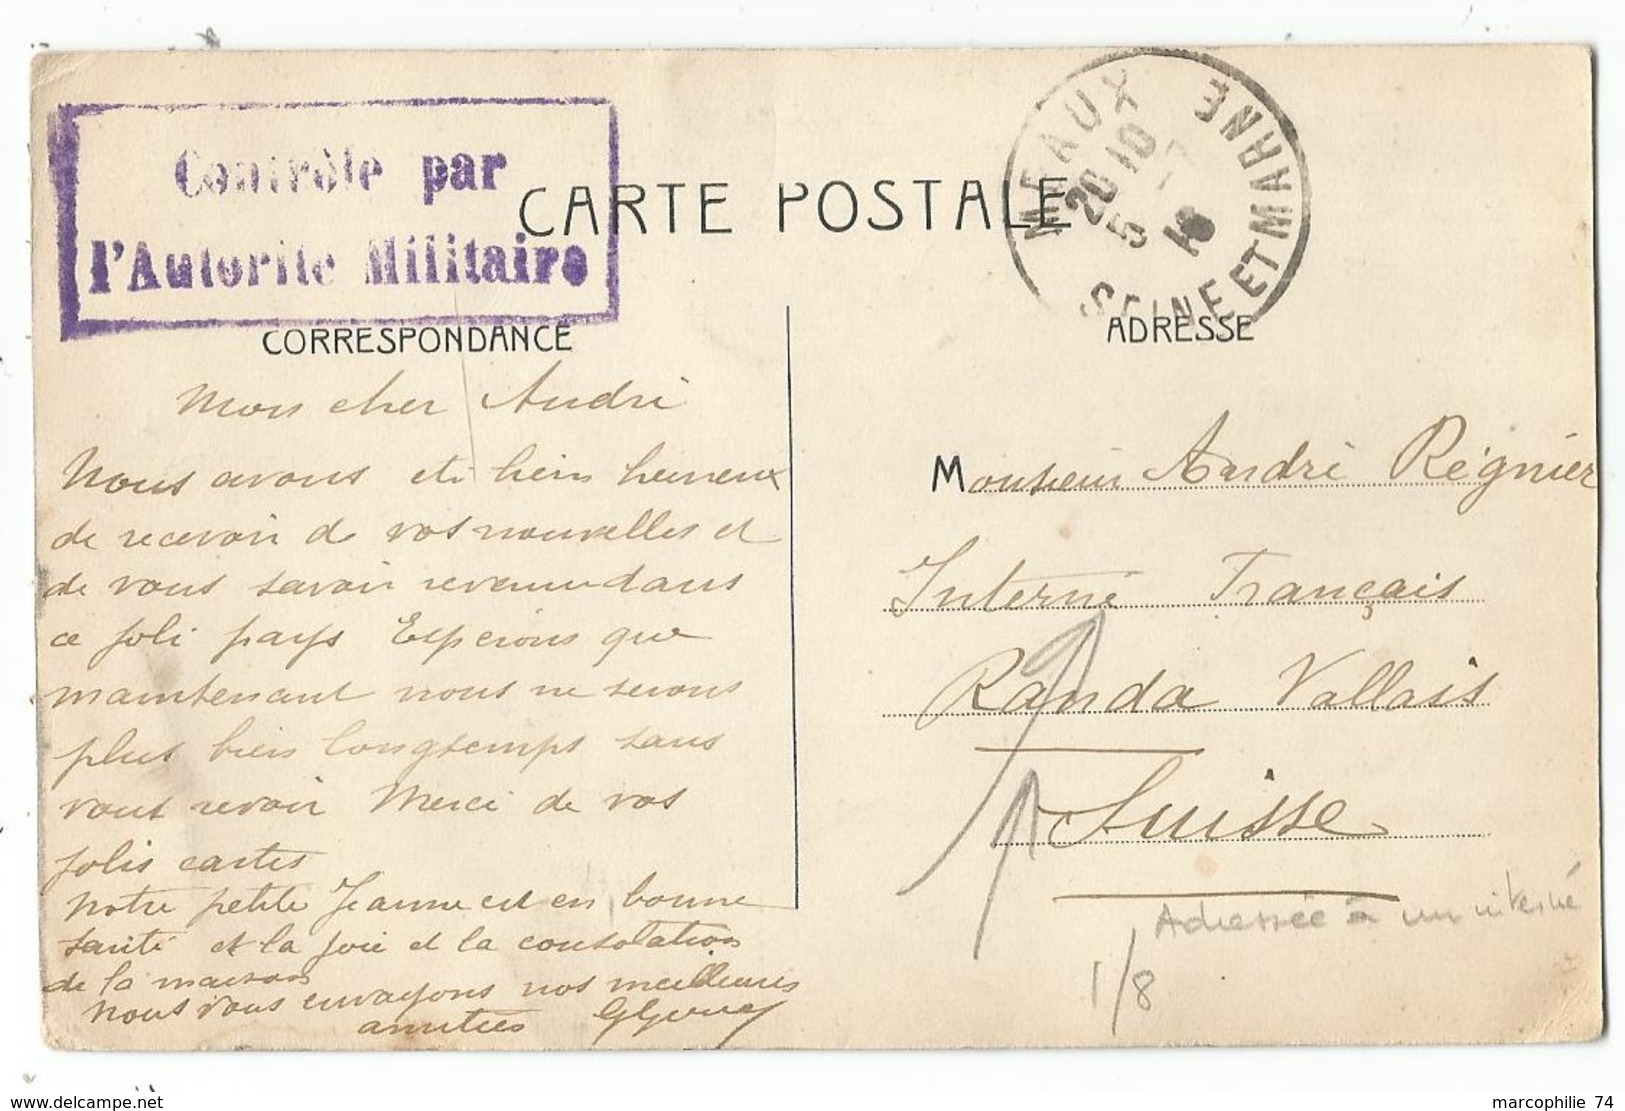 Contrôlé par
l'Autorité Militaire
CARTE POSTALE
MEAUX
20 10
5
SEINE ET MARNE
CORRESPONDANCE
ADRESSE
Mon cher André
Nous avons été bien heureux
de recevoir de vos nouvelles et
de vous savoir revenu dans
ce joli pays Espérons que
maintenant nous ne serons
plus bien longtemps sans
vous revoir Merci de vos
jolis cartes
notre petite Jeanne est en bonne
santé et la joie et la consolation
de la maison
nous vous envoyons nos meilleures
amitiés
Monsieur André Régnier
Interné Français
Randa Vallais
Suisse
Adressée à un interné
1/8
www.delcampe.net
marcophilie 74